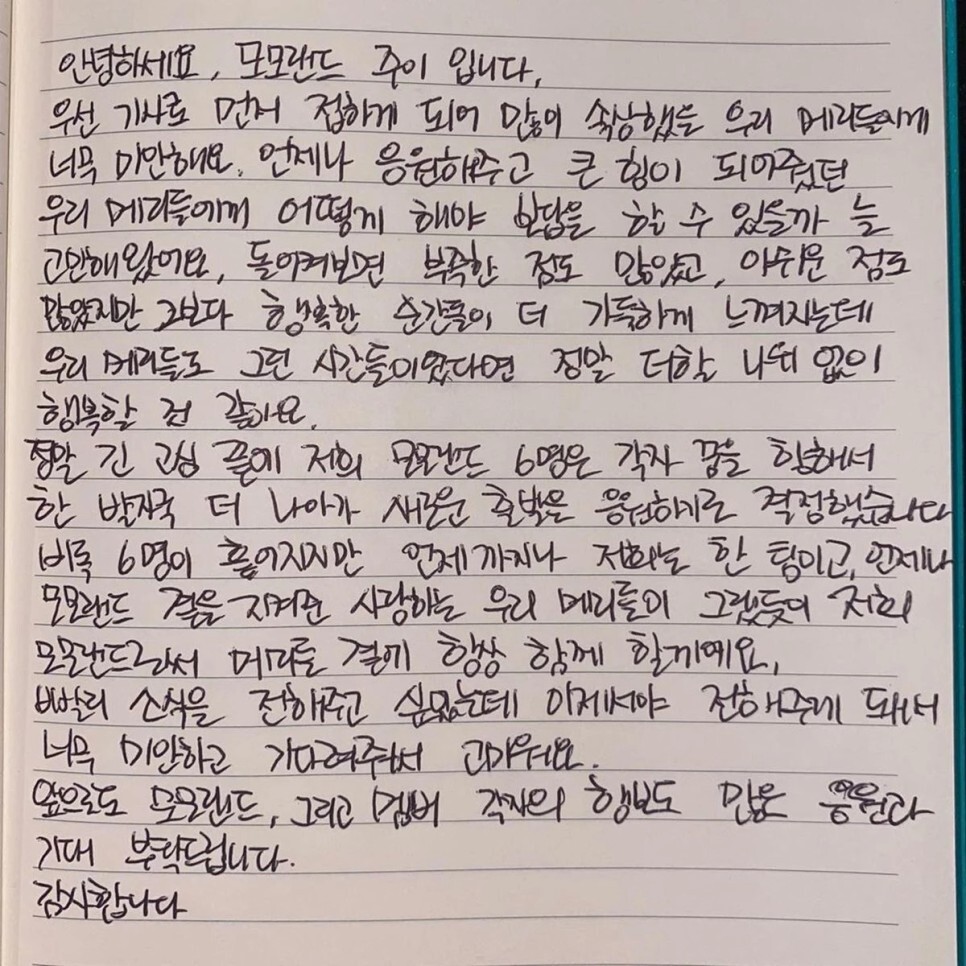 안녕하세요, 모모랜드 주이 입니다,
우선 기사로 먼저 접하게 되어 많이 속상했을 우리 메리들에게
너무 미안해요. 언제나 응원해주고 큰 힘이 되어줬던
우리 메리들에게 어떻게 해야 보답을 할 수 있을까 늘
고민해왔어요, 돌이켜보면 부족한 점도 많았고, 아쉬운 점도
많았지만 그보다 행복한 순간들이 더 가득하게 느껴지는데
우리 메리들도 그런 시간들이였다면 정말 더할 나위 없이
행복할 것 같아요.
정말 긴 고심 끝에 저희 모모랜드 6명은 각자 꿈을 향해서
한 발자국 더 나아가 새로운 출발은 응원하기로 결정했습니다
비록 6명이 흩어지지만 언제까지나 저희는 한 팀이고, 언제나
모모랜드 곁을 지켜준 사랑하는 우리 메리들이 그랬듯이 저희
모모랜드로서 메리들 곁에 항상 함께 할게예요,
빨리 소식을 전해주고 싶었는데 이제서야 전해주게 돼서
너무 미안하고 기다려줘서 고마워요.
앞으로도 모모랜드, 그리고 멤버 각자의 행보도 많은 응원과
기대 부탁드립니다.
감사합니다